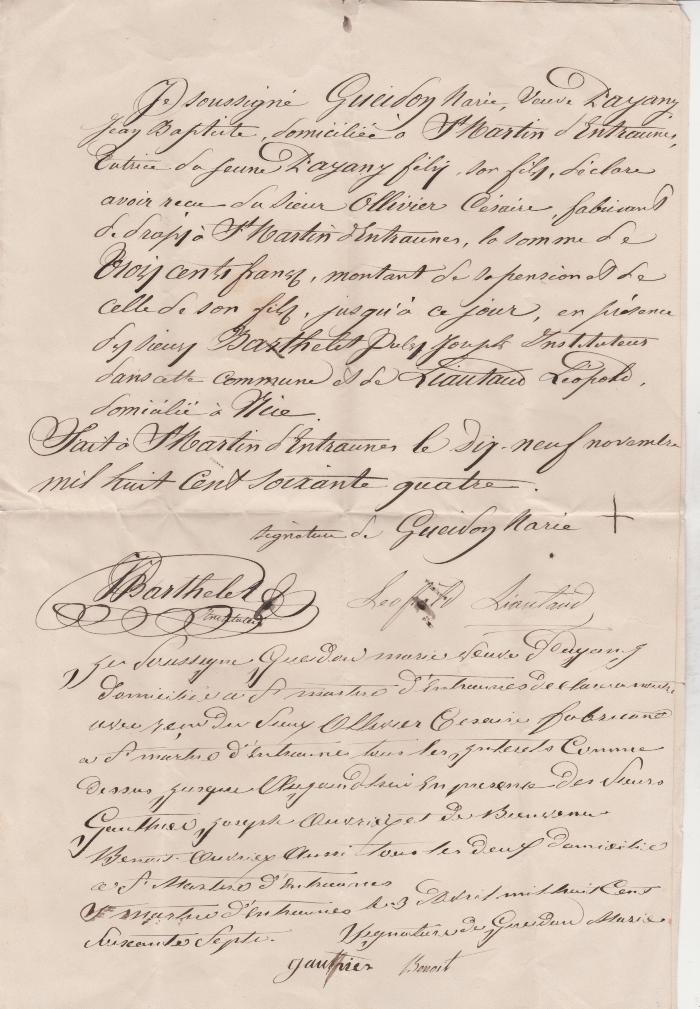 Je soussigné Gueidon Marie, Veuve Dayany
Jean Baptiste, domiciliée à St Martin d'Entraunes,
tutrice du jeune Dayany fils, son fils, déclare
avoir reçu du sieur Ollivier Césaire, fabricant
de draps à St Martin d'Entraunes, la somme de
trois cents francs, montant de sa pension et de
celle de son fils, jusqu'à ce jour, en présence
des sieurs Barthelet Jules Joseph Instituteur
dans cette commune et de Liautaud Léopold,
domicilié à Nice.
Fait à St Martin d'Entraunes le dix-neuf novembre
mil huit cent soixante quatre.
signature de Gueidon Marie +
JBarthelet Leopold Liautaud
Instituteur
Je Soussigne Gueidon marie veuve Dayany
domiciliée a St martin d'Entraunes declare
avoir reçu du Sieur Ollivier Cesaire fabricant
a St martin d'Entraunes tous les Interets Comme
dessus jusque Augourdhui En presence des Sieurs
Gauthier Joseph Ouvrier et de Bienvenu
Benoit Ouvrier Aussi tous les deux domicilie
a St Martin d'Entraunes
St martin d'Entraunes le 3 Avril mil huit Cent
Soixante Sept. Signature de Gueidon Marie
gauthier Benoit